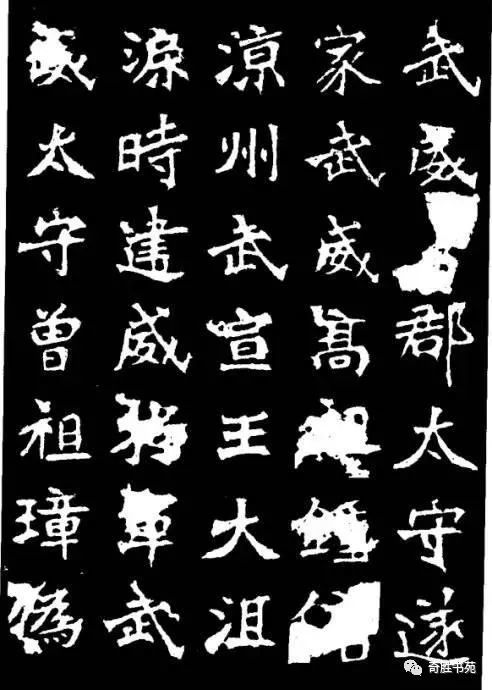 武威郡太守遂
家武威髙鍾
涼州武宣王大沮
渠時建威將軍武
威太守曾祖璋僞
奇胜书苑